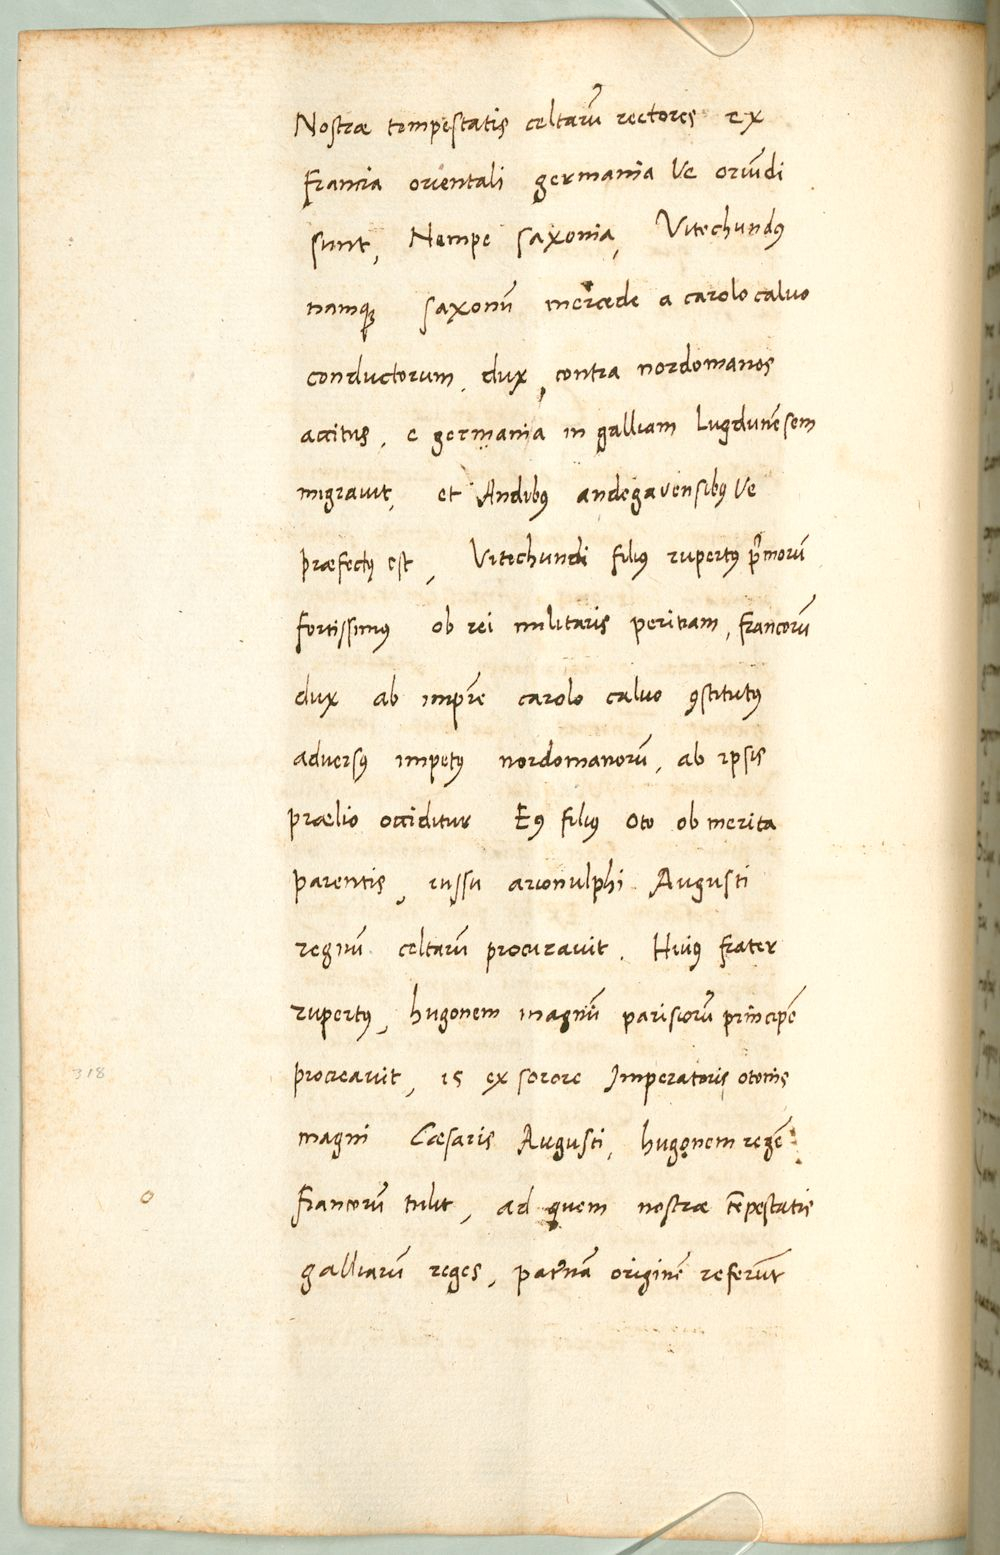 Nostræ tempestatis celtarū rectores ex
Francia orientali germania Ve oriūdi
sunt, Nempe saxonia, Vitechundꝰ
namqꝫ saxonū mercede a carolo caluo
conductorum, dux, contra nordomanos
accitus, e germania in galliam Lugdunēsem
migrauit, et Andibꝰ andegavensibꝰ Ve
præfectꝰ est, Vitichundi filiꝰ rupertꝰ prĩmorū
fortissimꝰ ob rei militaris peritiam, francorū
dux ab impre̅ carolo caluo ꝯstitutꝰ
adversꝰ impetꝰ nordomanorū, ab ipsis
prælio occiditur Eꝰ filiꝰ Oto ob merita
parentis, iussu arionulphi Augusti
regnū celtarū procuravit. Huiꝰ frater
rupertꝰ, hugonem magnū parisiorū principē
procreavit, is ex sorore Imperatoris otonis
magni Cæsaris Augusti, hugonem regē
francorū tulit, ad quem nostræ tēpestatis
galliarū reges, paťnā originē referūt
318